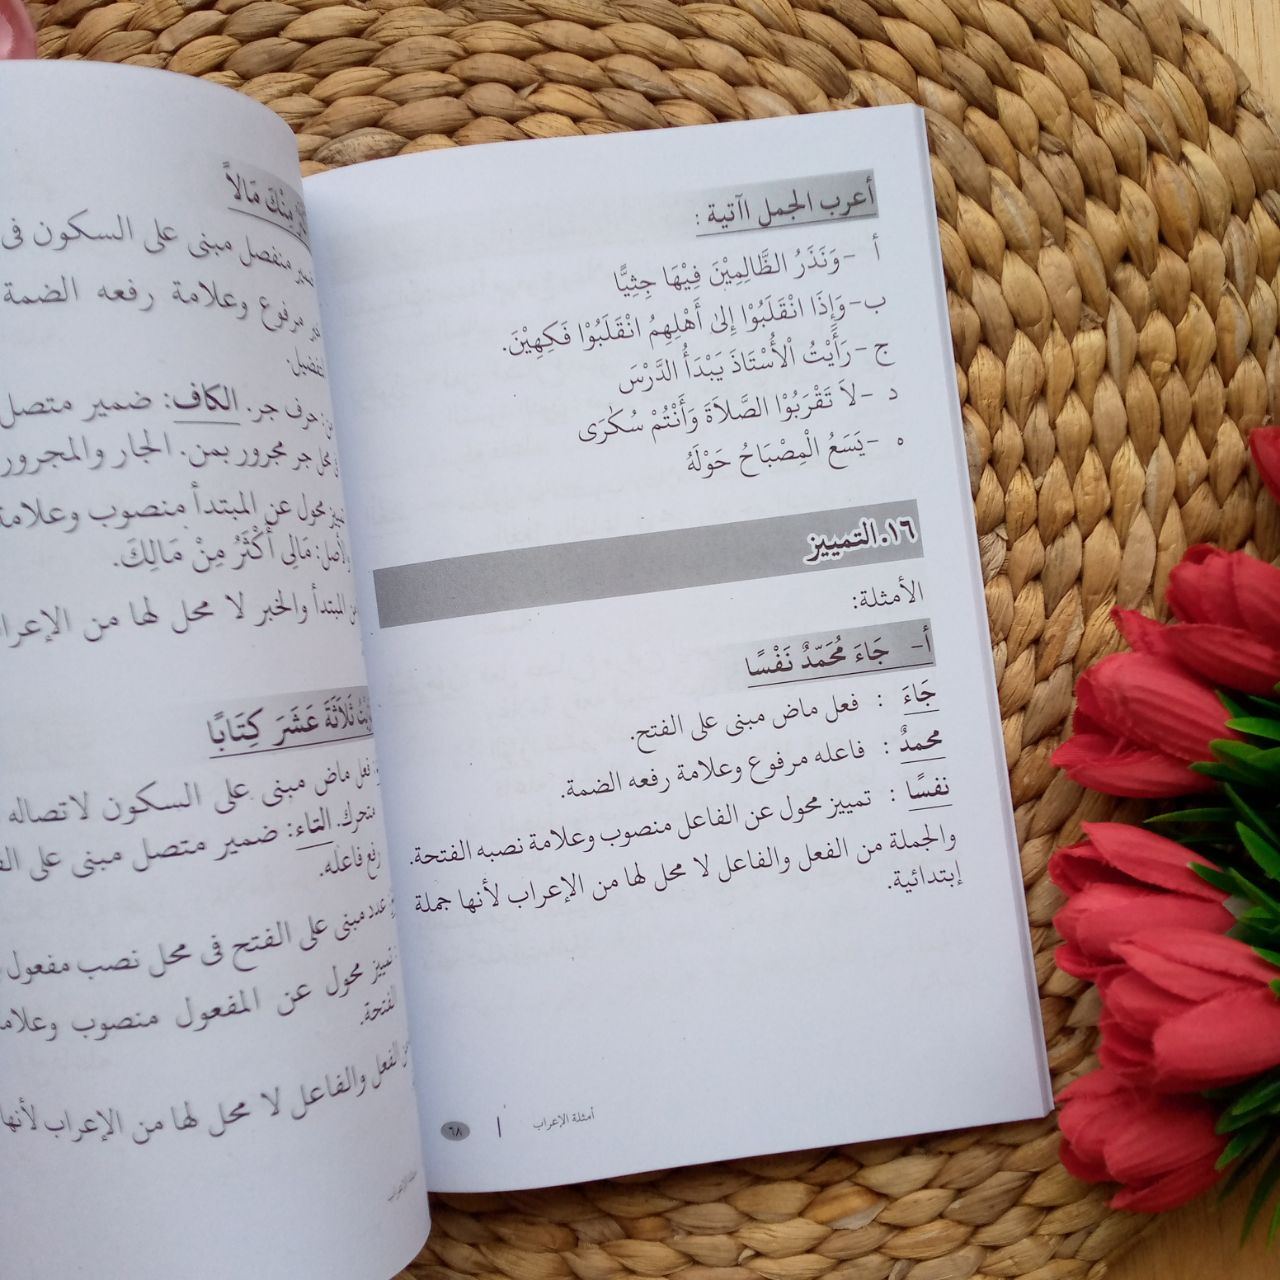 أعرب الجمل اآتية :
أ - وَنَذَرُ الظَّالِمِيْنَ فِيْهَا جِثِيًّا
ب- وَإِذَا انْقَلَبُوْا إِلىٰ أَهْلِهِمُ انْقَلَبُوْا فَكِهِيْنَ.
ج - رَأَيْتُ الْأُسْتَاذَ يَبْدَأُ الدَّرْسَ
د - لاَ تَقْرَبُوْا الصَّلاَةَ وَأَنْتُمْ سُكٰرَى
ه - يَسَعُ الْمِصْبَاحُ حَوْلَهُ
١٦. التمييز
الأمثلة:
أ- جَاءَ مُحَمَّدٌ نَفْسًا
جَاءَ : فعل ماض مبنى على الفتح.
محمدٌ : فاعله مرفوع وعلامة رفعه الضمة.
نفسًا : تمييز محول عن الفاعل منصوب وعلامة نصبه الفتحة.
والجملة من الفعل والفاعل لا محل لها من الإعراب لأنها جملة
إبتدائية.
أمثلة الإعراب | ٦٨
مِنْكَ مَالاً
منفصل مبنى على السكون فى
مرفوع وعلامة رفعه الضمة
حرف جر. الكاف: ضمير متصل
محل جر مجرور بمن. الجار والمجرور
محول عن المبتدأ منصوب وعلامة
مَالِى أَكْثَرُ مِنْ مَالِكَ.
المبتدأ والخبر لا محل لها من
ثَلاَثَةَ عَشَرَ كِتَابًا
فعل ماض مبنى على السكون لاتصاله
متحرك. التاء: ضمير متصل مبنى على
رفع فاعله.
عدد مبنى على الفتح فى محل نصب مفعول
تمييز محول عن المفعول منصوب
الفتحة.
الفعل والفاعل لا محل لها من الإعراب لأنها